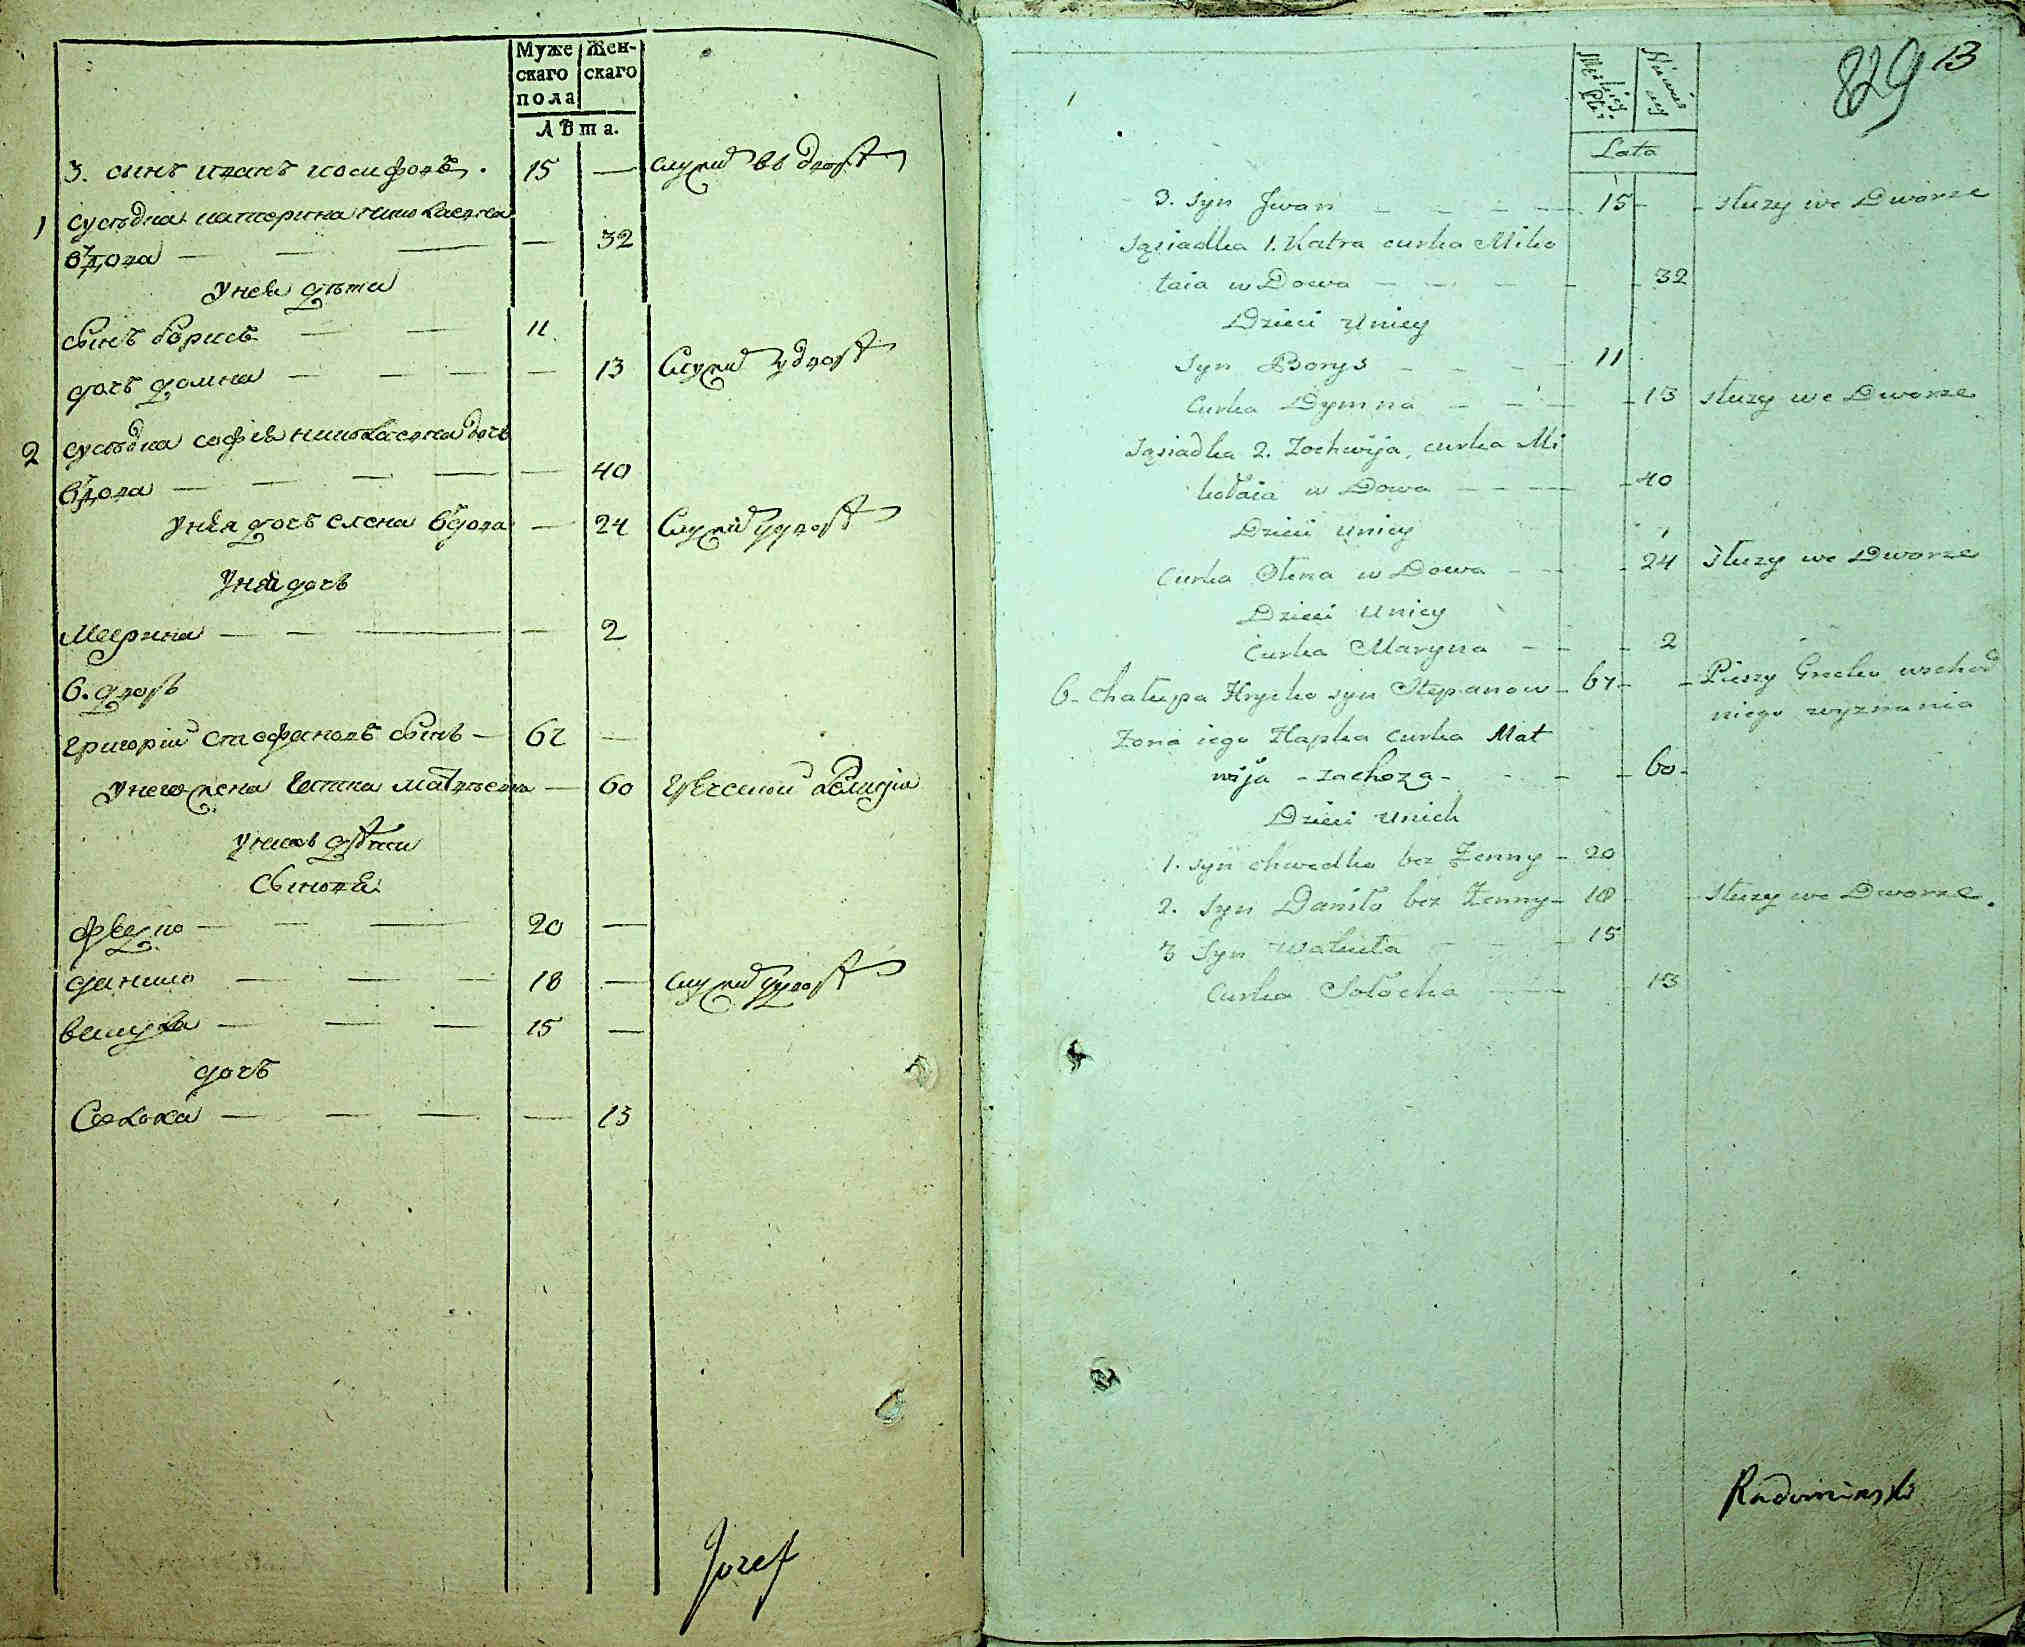 Муже Жен-
скаго скаго
пола
Лѣта.
3. синъ иванъ иосифовъ. 15 — служит въ дворѣ
1 сусѣдка катерина николаевна
вдова — — — — 32
У нея дѣти
Синъ борисъ — — 11
дочь домна — — — — 13 Служит у дворѣ
2 сусѣдка софія николаевна дочь
вдова — — — — — 40
У нея дочь елена вдова — 24 Служит у дворѣ
У нея дочь
Марина — — — — 2
6. дворъ
григорій стефановъ синъ — 67 —
У него жена Гапка матвѣевна — 60 греческой религіи
У нихъ дѣти
Синовя
федко — — — 20 —
данило — — — 18 — служит у дворѣ
вакула — — — 15 —
дочь
Солоха — — — — 13
Jozef
829 13
Męskiej Płci
Lata
3. Syn Jwan — — — — 15 — — służy we Dworze
Sąsiadka 1. Katra curka Miko
łaia w Dowa — — — — — 32
Dzieci Uniey
Syn Borys — — — — 11
Curka Dymna — — — — 13 służy we Dworze
Sąsiadka 2. Zochwija, curka Mi
kołaia w Dowa — — — — 40
Dzieci Uniey
Curka Olena w Dowa — — — 24 Służy we Dworze
Dzieci Uniey
Curka Maryna — — — 2
6. Chałupa Hryćko syn Stepanow — 67 — — Pieszy Greko wschod
niego wyznania
Zona iego Hapka curka Mat
wija — — — — 60 —
Dzieci Unich
1. Syn Chwedko bez Zenny — 20
2. Syn Daniło bez Zenny — 18 — służy we Dworze.
3 Syn Wakuła — — — 15
Curka Sołocha — — 13
Radominski